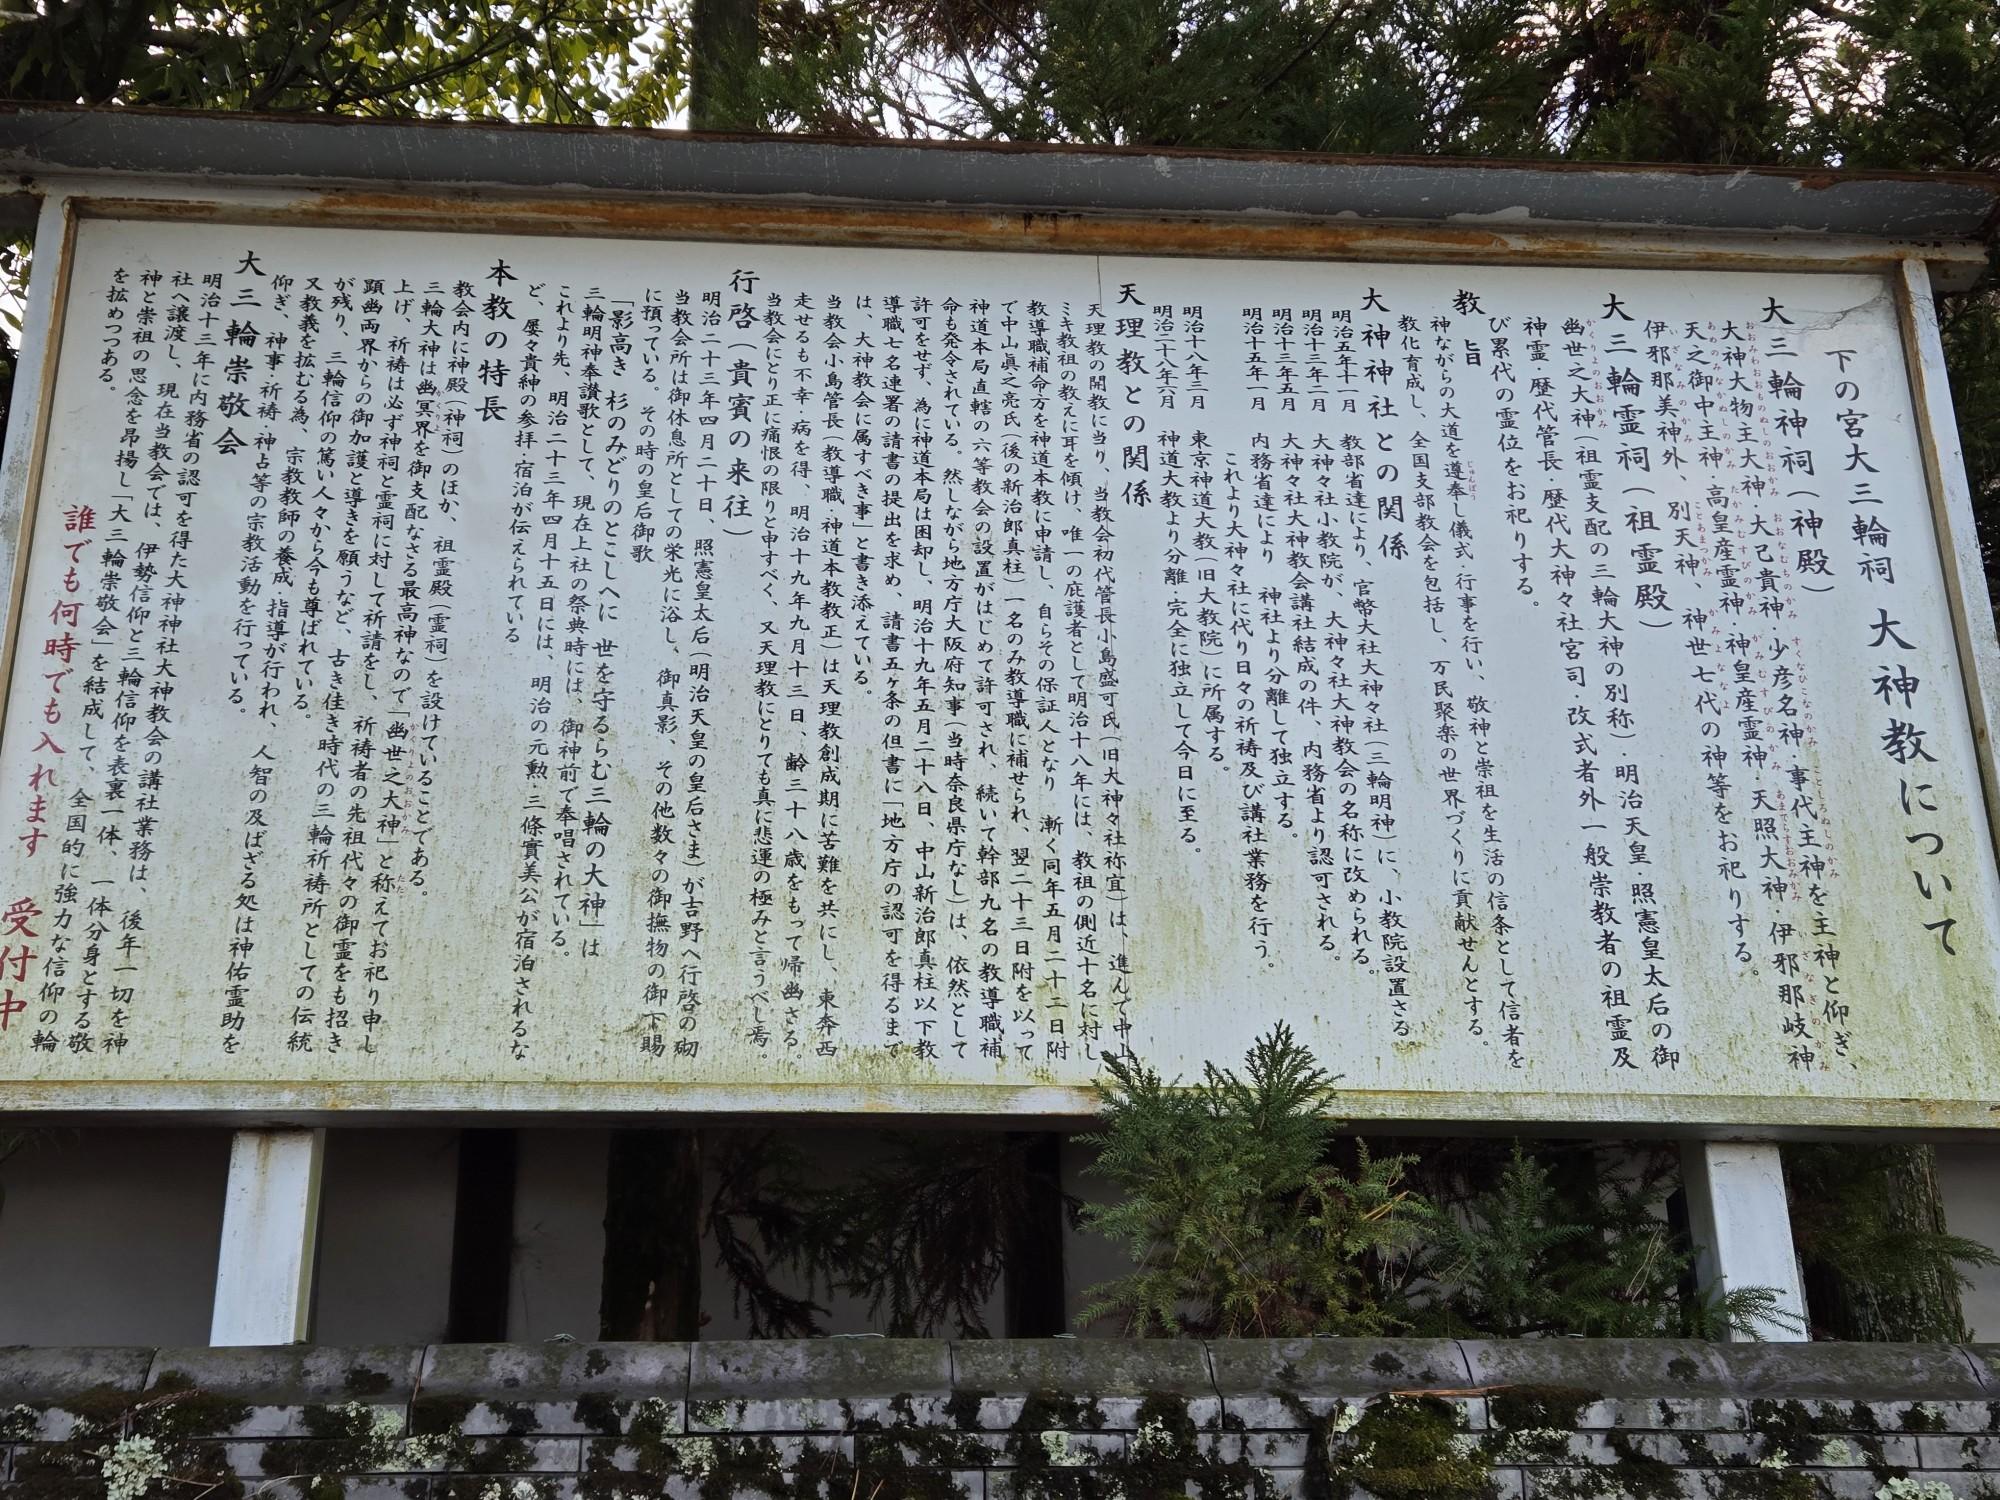 下の宮大三輪祠 大神教について
大三輪神祠（神殿）
大神大物主大神・大己貴神・少彦名神・事代主神を主神と仰ぎ、
天之御中主神・高皇産霊神・神皇産霊神・天照大神・伊邪那岐神
伊邪那美神外、別天神、神世七代の神等をお祀りする。
大三輪霊祠（祖霊殿）
幽世之大神（祖霊支配の三輪大神の別称）・明治天皇・照憲皇太后の御
神霊・歴代管長・歴代大神々社宮司・改式者外一般崇教者の祖霊及
び累代の霊位をお祀りする。
教旨
神ながらの大道を遵奉し儀式・行事を行い、敬神と崇祖を生活の信条として信者を
教化育成し、全国支部教会を包括し、万民聚楽の世界づくりに貢献せんとする。
大神神社との関係
明治五年十一月 教部省達により、官幣大社大神々社（三輪明神）に、小教院設置さる。
明治十三年二月 大神々社小教院が、大神々社大神教会の名称に改められる。
明治十三年五月 大神々社大神教会講社結成の件、内務省より認可される。
明治十五年一月 内務省達により 神社より分離して独立する。
これより大神々社に代り日々の祈祷及び講社業務を行う。
明治十八年三月 東京神道大教（旧大教院）に所属する。
明治二十八年六月 神道大教より分離・完全に独立して今日に至る。
天理教との関係
天理教の開教に当り、当教会初代管長小島盛可氏（旧大神々社祢宜）は、進んで中山
ミキ教祖の教えに耳を傾け、唯一の庇護者として明治十八年には、教祖の側近十名に対し
教導職補命方を神道本教に申請し、自らその保証人となり 漸く同年五月二十二日附
で中山眞之亮氏（後の新治郎真柱）一名のみ教導職に補せられ、翌二十三日附を以って
神道本局直轄の六等教会の設置がはじめて許可され、続いて幹部九名の教導職補
命も発令されている。然しながら地方庁大阪府知事（当時奈良県庁なし）は、依然として
許可をせず、為に神道本局は困却し、明治十九年五月二十八日、中山新治郎真柱以下教
導職七名連署の請書の提出を求め、請書五ヶ条の但書に「地方庁の認可を得るまで
は、大神教会に属すべき事」と書き添えている。
当教会小島管長（教導職・神道本教教正）は天理教創成期に苦難を共にし、東奔西
走せるも不幸・病を得、明治十九年九月十三日、齢三十八歳をもって帰幽さる。
当教会にとり正に痛恨の限りと申すべく、又天理教にとりても真に悲運の極みと言うべし焉。
行啓（貴賓の来往）
明治二十三年四月二十日、照憲皇太后（明治天皇の皇后さま）が吉野へ行啓の砌
当教会所は御休息所としての栄光に浴し、御真影、その他数々の御撫物の御下賜
に預っている。その時の皇后御歌
「影高き 杉のみどりのとこしへに 世を守るらむ三輪の大神」は
三輪明神奉讃歌として、現在上社の祭典時には、御神前で奉唱されている。
これより先、明治二十三年四月十五日には、明治の元勲・三條實美公が宿泊されるな
ど、屡々貴紳の参拝・宿泊が伝えられている
本教の特長
教会内に神殿（神祠）のほか、祖霊殿（霊祠）を設けていることである。
三輪大神は幽冥界を御支配なさる最高神なので「幽世之大神」と称えてお祀り申し
上げ、祈祷は必ず神祠と霊祠に対して祈請をし、祈祷者の先祖代々の御霊をも招き
顕幽両界からの御加護と導きを願うなど、古き佳き時代の三輪祈祷所としての伝統
が残り、三輪信仰の篤い人々から今も尊ばれている。
又教義を拡むる為、宗教教師の養成・指導が行われ、人智の及ばざる処は神佑霊助を
仰ぎ、神事・祈祷・神占等の宗教活動を行っている。
大三輪崇敬会
明治十三年に内務省の認可を得た大神神社大神教会の講社業務は、後年一切を神
社へ譲渡し、現在当教会では、伊勢信仰と三輪信仰を表裏一体、一体分身とする敬
神と崇祖の思念を昂揚し「大三輪崇敬会」を結成して、全国的に強力な信仰の輪
を拡めつつある。
誰でも何時でも入れます 受付中